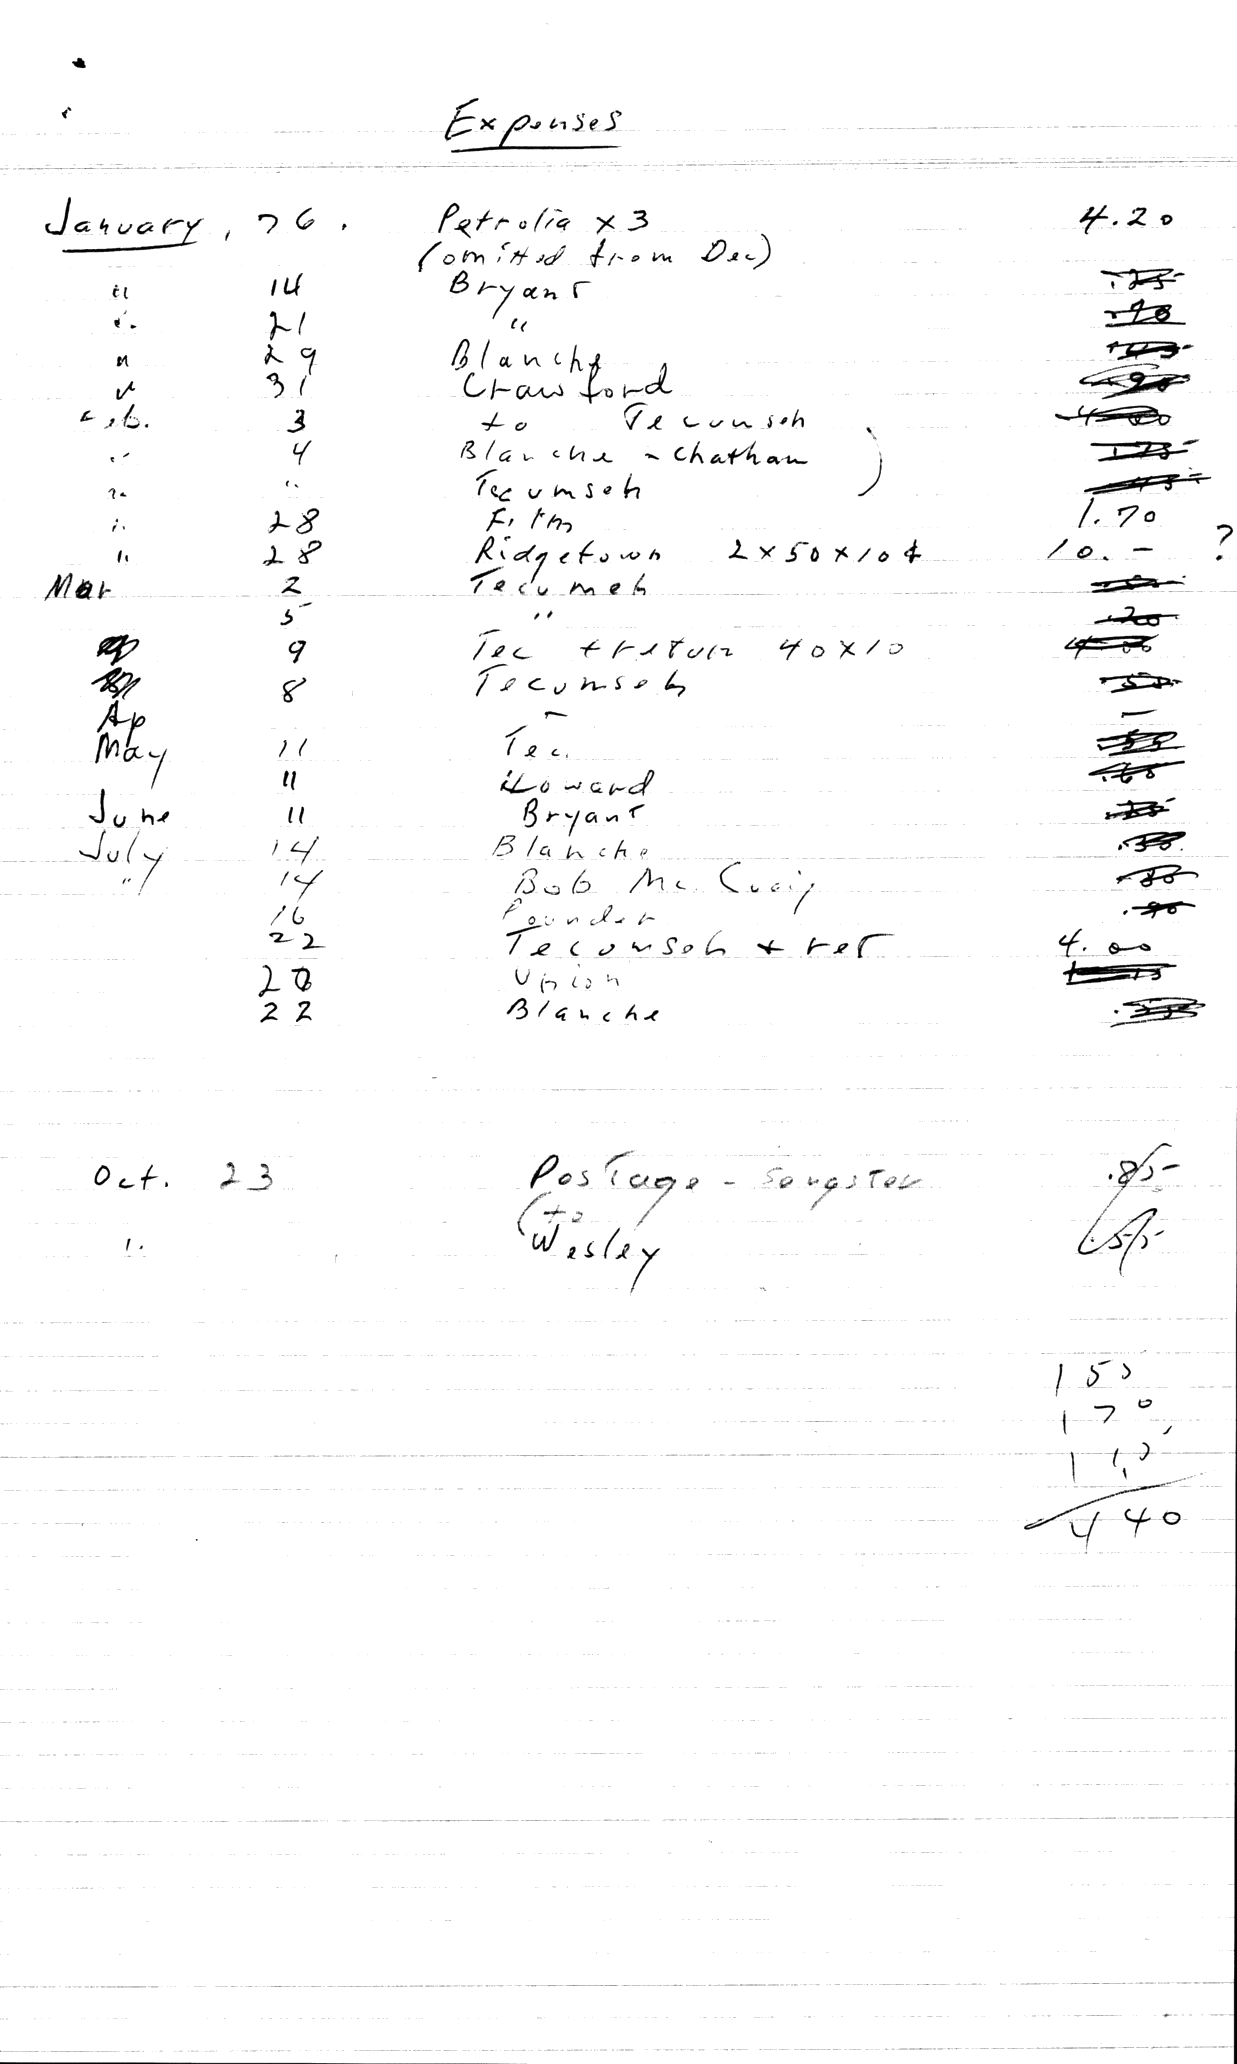 Expenses
January, 76. Petrolia x 3 4.20
(omitted from Dec)
" 14 Bryant .25
" 21 "
" 29 Blanche
" 31 Crawford .90
Feb. 3 to Tecumseh 4.00
" 4 Blanche - Chatham 1.75
" " Tecumseh
" 28 Film 1.70
" 28 Ridgetown 2x50x10¢ 10.- ?
Mar 2 Tecumeh
5 " .20
9 Tec + return 40x10 4.00
8 Tecumseh .50
Ap - -
May 11 Tec. .55
11 Howard .60
June 11 Bryant .25
July 14 Blanche
" 14 Bob Mc. Craig
16 Pounder
22 Tecumseh + ret 4.00
20 Union
22 Blanche
Oct. 23 Postage - Songster .85
(to
" Wesley .55
150
170
440